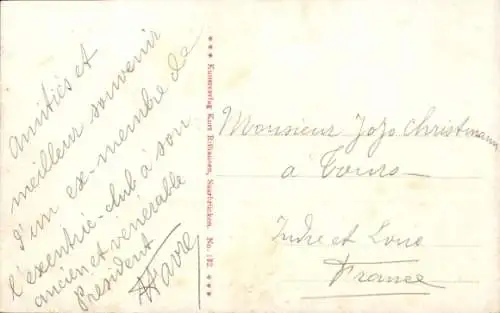 Amitiés et
meilleur souvenir
d'un ex-membre de
l'exentric-club à son
ancien et vénérable
Président
*** Kunstverlag Kurt Saarbrücken. No. 182 ***
Monsieur Jojo Christmann
à Tours
Indre et Loire
France